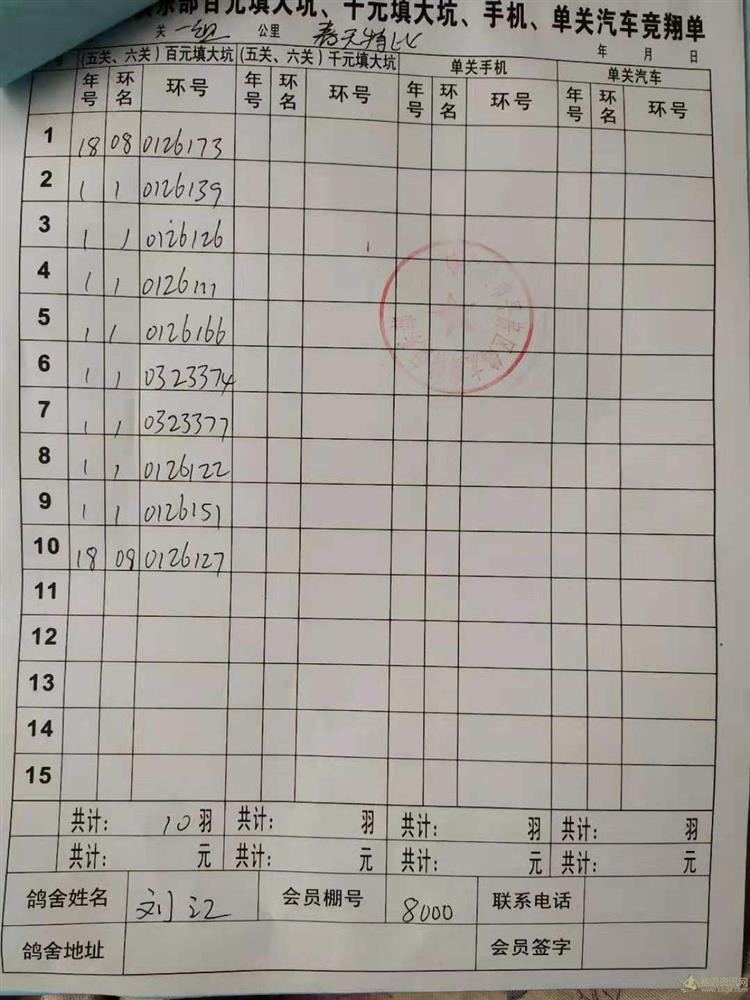 乐部百元填大坑、千元填大坑、手机、单关汽车竞翔单
关 一组 公里 春天特比 年 月 日
号 (五关、六关)百元填大坑 (五关、六关)千元填大坑 单关手机 单关汽车
年号 环名 环号 年号 环名 环号 年号 环名 环号 年号 环名 环号
1 18 08 0126173
2 1 1 0126139
3 1 1 0126126
4 1 1 0126111
5 1 1 0126166
6 1 1 0323374
7 1 1 0323377
8 1 1 0126122
9 1 1 0126151
10 18 08 0126127
11
12
13
14
15
共计: 10 羽 共计: 羽 共计: 羽 共计: 羽
共计: 元 共计: 元 共计: 元 共计: 元
鸽舍姓名 刘江 会员棚号 8000 联系电话
鸽舍地址 会员签字
赛鸽资讯网